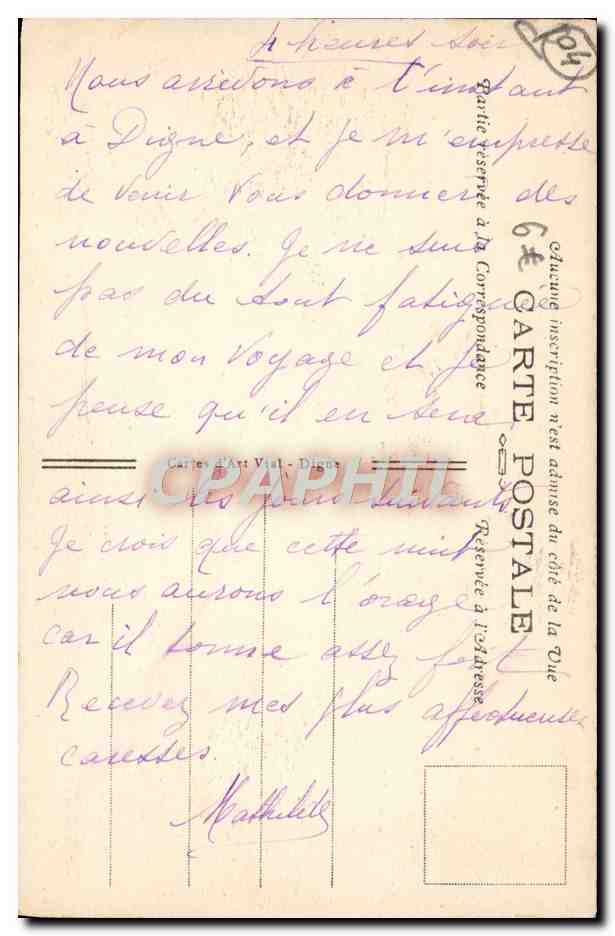 4 heures soir
Nous arrivons à l'instant
à Digne, et je m'empresse
de venir vous donner des
nouvelles. Je ne suis
pas du tout fatiguée
de mon voyage et je
pense qu'il en sera
ainsi les jours suivants.
Je crois que cette nuit
nous aurons l'orage
car il tonne assez fort
Recevez mes plus affectueuses
caresses.
Mathilde
04
6€
Aucune inscription n'est admise du côté de la Vue
CARTE POSTALE
Partie réservée à la Correspondance
Réservée à l'Adresse
Cartes d'Art Vial - Digne
CPAPHIL